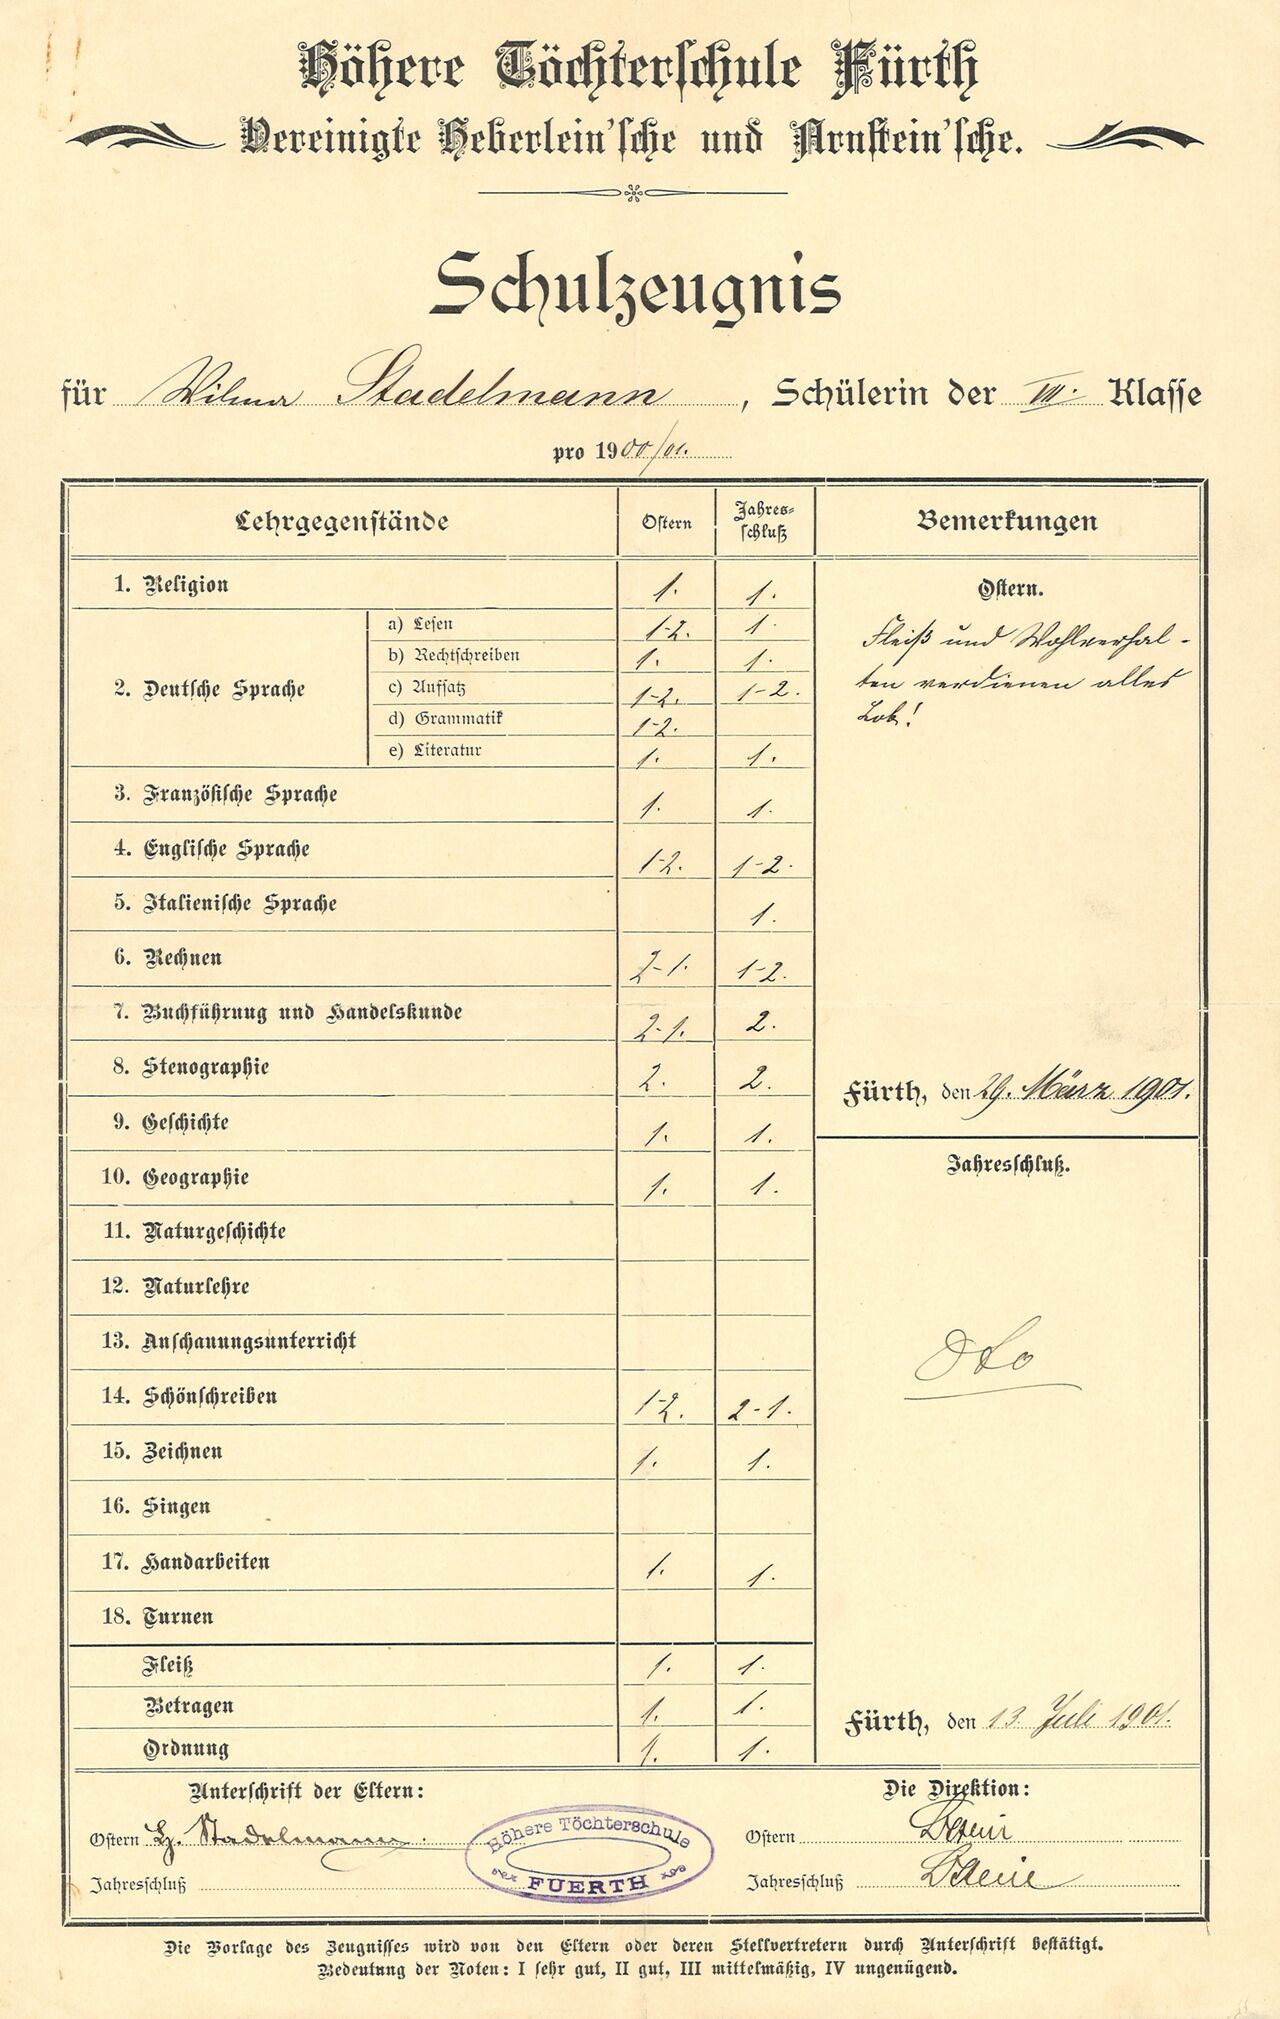 Höhere Töchterschule Fürth
Vereinigte Heberlein'sche und Arnstein'sche.
Schulzeugnis
für Wilma Stadelmann, Schülerin der VII. Klasse
pro 1900/01.
Lehrgegenstände Ostern Jahres-schluß Bemerkungen
1. Religion 1. 1.
2. Deutsche Sprache
a) Lesen 1-2. 1.
b) Rechtschreiben 1. 1.
c) Aufsatz 1-2. 1-2.
d) Grammatik 1-2.
e) Literatur 1. 1.
3. Französische Sprache 1. 1.
4. Englische Sprache 1-2. 1-2.
5. Italienische Sprache 1.
6. Rechnen 2-1. 1-2.
7. Buchführung und Handelskunde 2-1. 2.
8. Stenographie 2. 2.
9. Geschichte 1. 1.
10. Geographie 1. 1.
11. Naturgeschichte
12. Naturlehre
13. Anschauungsunterricht
14. Schönschreiben 1-2. 2-1.
15. Zeichnen 1. 1.
16. Singen
17. Handarbeiten 1. 1.
18. Turnen
Fleiß 1. 1.
Betragen 1. 1.
Ordnung 1. 1.
Ostern.
Fleiß und Wohlverhal-
ten verdienen alles
Lob!
Fürth, den 29. März 1901.
Jahresschluß.
Fürth, den 13. Juli 1901.
Unterschrift der Eltern:
Ostern H. Stadelmann.
Jahresschluß
Höhere Töchterschule
FUERTH
Die Direktion:
Ostern
Jahresschluß
Die Vorlage des Zeugnisses wird von den Eltern oder deren Stellvertretern durch Unterschrift bestätigt.
Bedeutung der Noten: I sehr gut, II gut, III mittelmäßig, IV ungenügend.